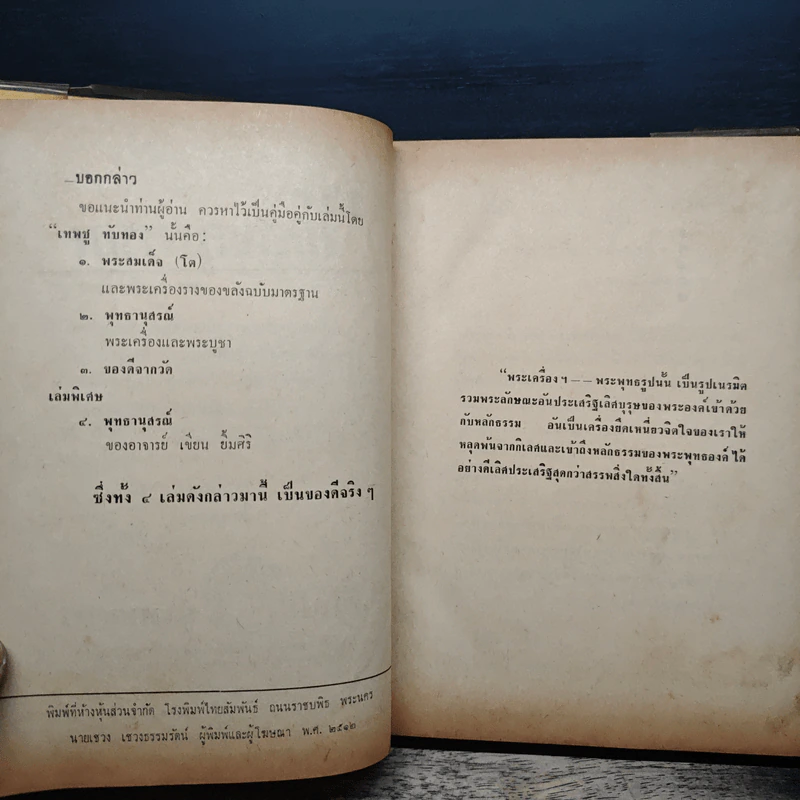 —บอกกล่าว
ขอแนะนำท่านผู้อ่าน ควรหาไว้เป็นคู่มือคู่กับเล่มนี้โดย
“เทพชู ทับทอง” นั้นคือ:
๑. พระสมเด็จ (โต)
และพระเครื่องรางของขลังฉบับมาตรฐาน
๒. พุทธานุสรณ์
พระเครื่องและพระบูชา
๓. ของดีจากวัด
เล่มพิเศษ
๔. พุทธานุสรณ์
ของอาจารย์ เขียน ยิ้มศิริ
ซึ่งทั้ง ๔ เล่มดังกล่าวมานี้ เป็นของดีจริง ๆ
พิมพ์ที่ห้างหุ้นส่วนจำกัด โรงพิมพ์ไทยสัมพันธ์ ถนนราชบพิธ พระนคร
นายเชวง เชวงธรรมรัตน์ ผู้พิมพ์และผู้โฆษณา พ.ศ. ๒๕๑๒
“พระเครื่อง ฯ —— พระพุทธรูปนั้น เป็นรูปเนรมิต
รวมพระลักษณะอันประเสริฐเลิศบุรุษของพระองค์เข้าด้วย
กับหลักธรรม อันเป็นเครื่องยึดเหนี่ยวจิตใจของเราให้
หลุดพ้นจากกิเลศและเข้าถึงหลักธรรมของพระพุทธองค์ ได้
อย่างดีเลิศประเสริฐสุดกว่าสรรพสิ่งใดทั้งสิ้น”